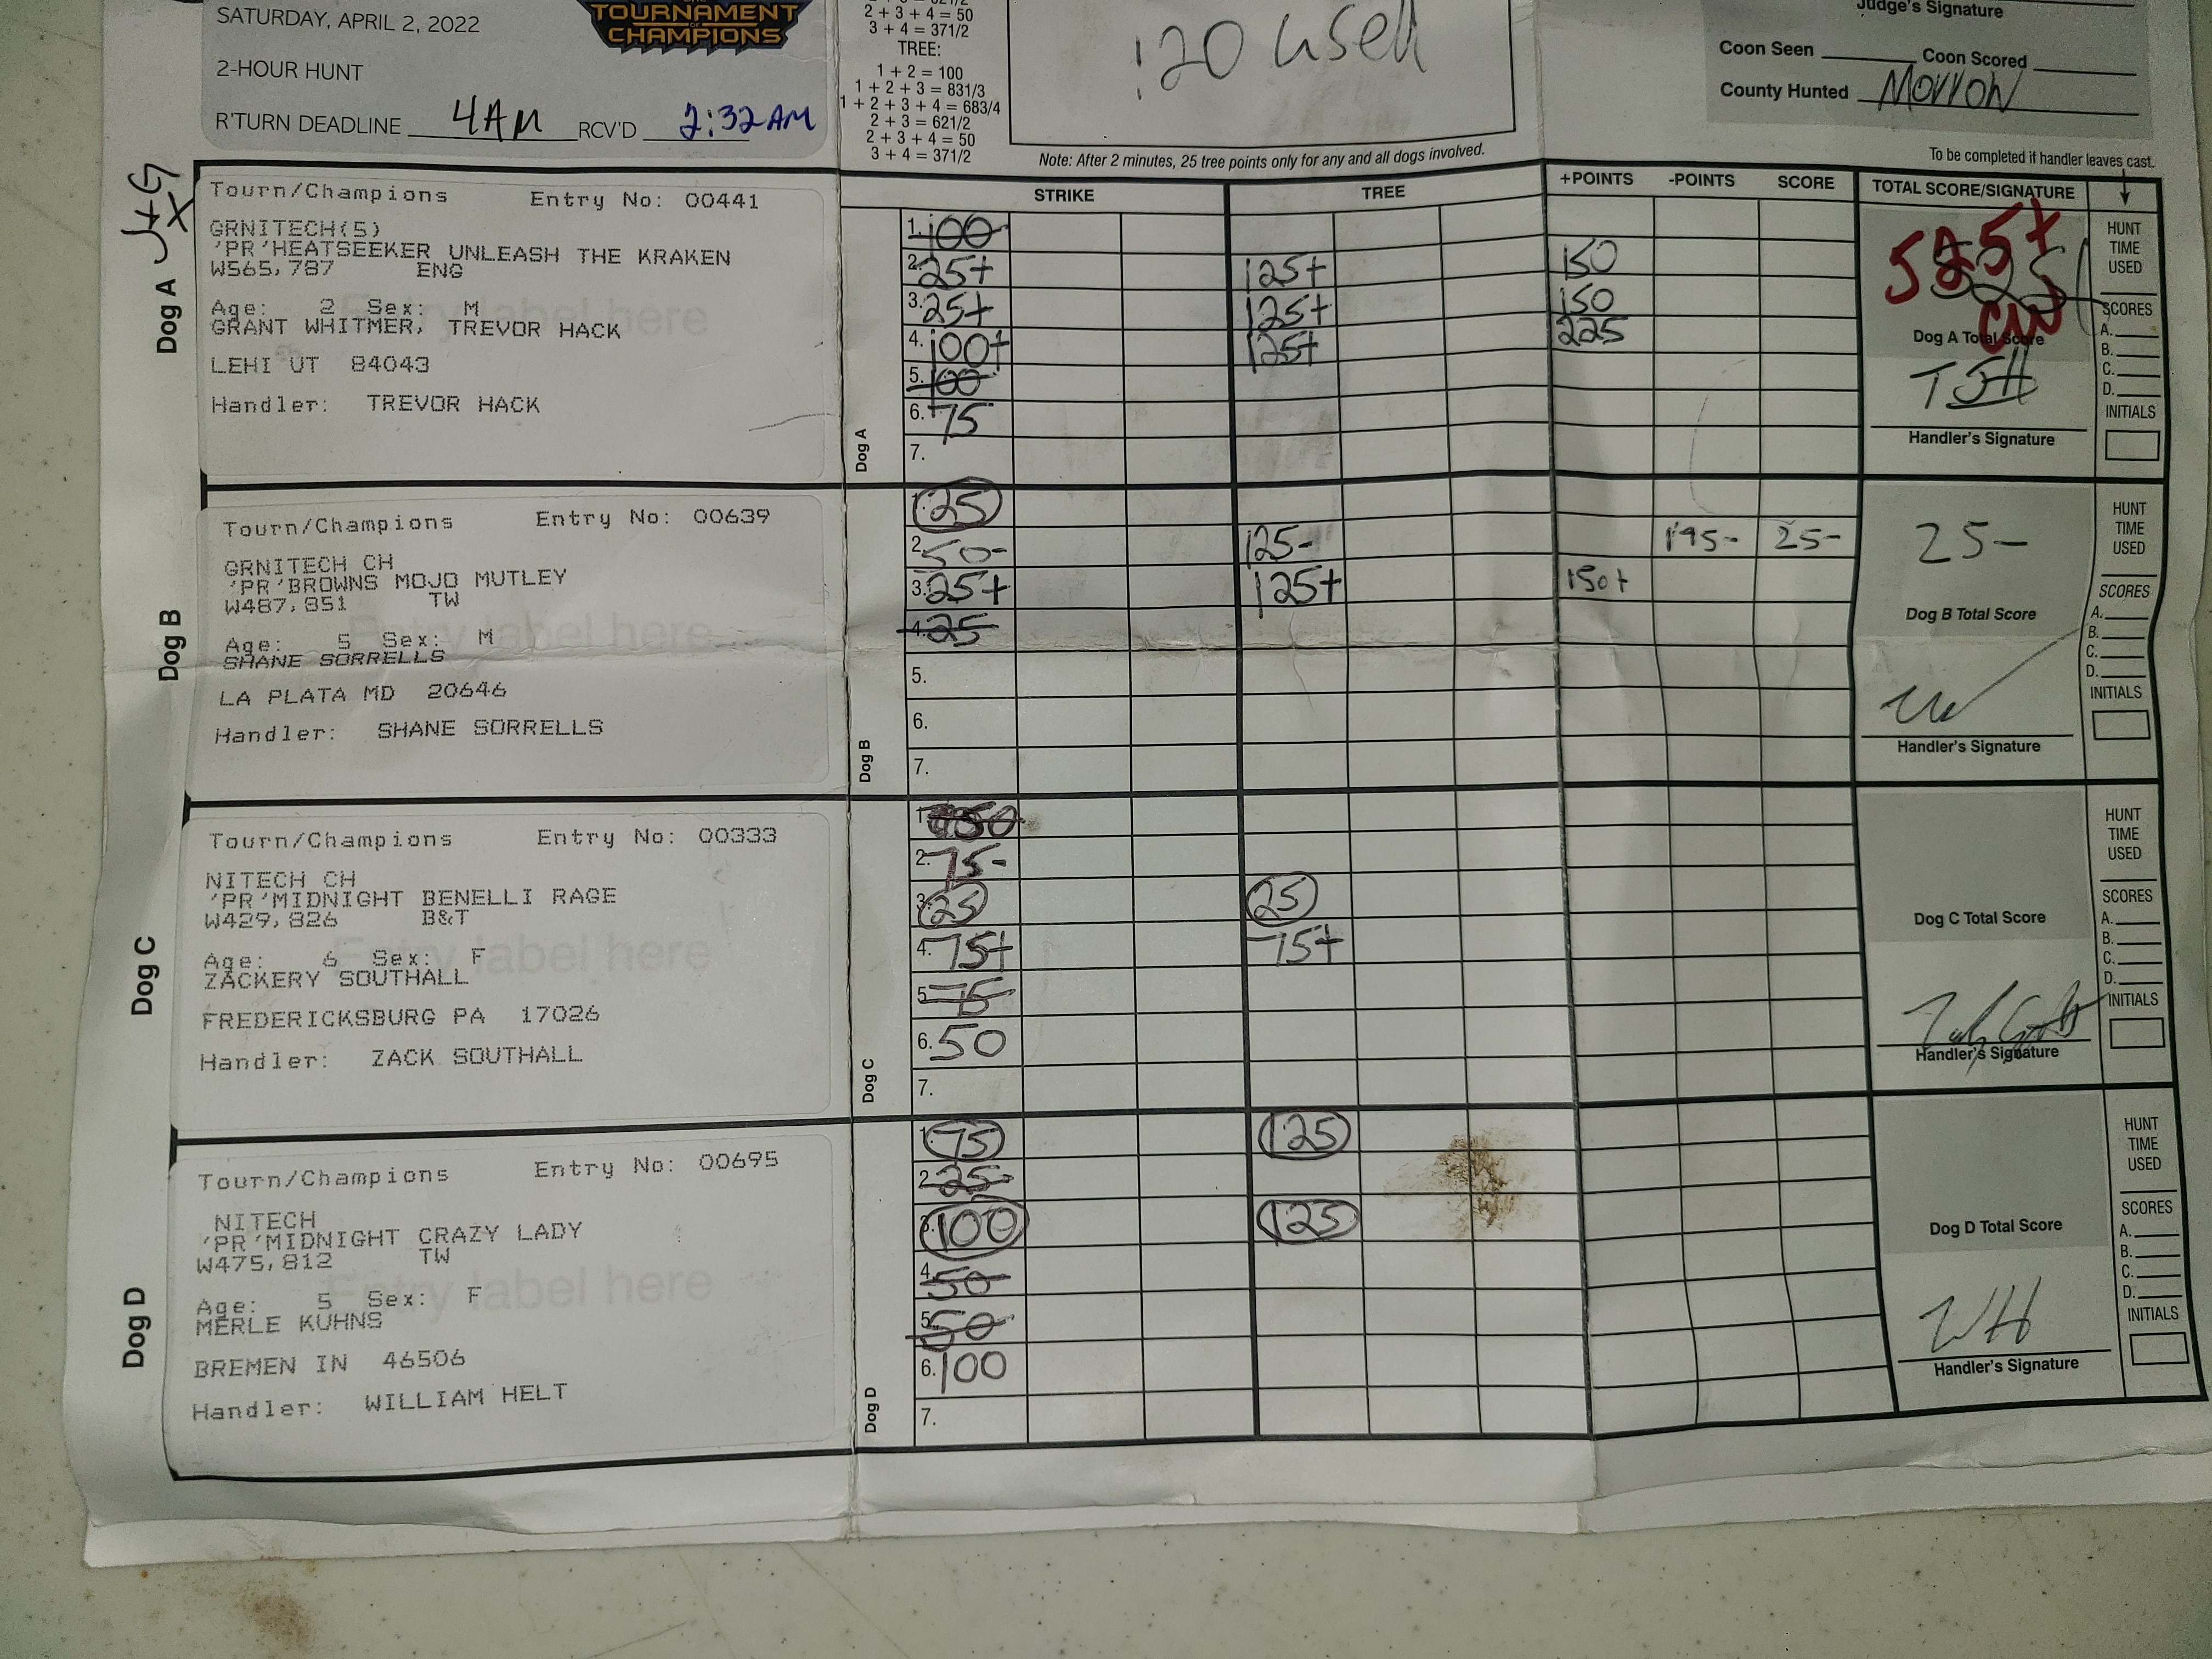 SATURDAY, APRIL 2, 2022
2-HOUR HUNT
R'TURN DEADLINE 4AM RCV'D 2:32AM
TOURNAMENT
OF
CHAMPIONS
2 + 3 + 4 = 50
3 + 4 = 371/2
TREE:
1 + 2 = 100
1 + 2 + 3 = 831/3
1 + 2 + 3 + 4 = 683/4
2 + 3 = 621/2
2 + 3 + 4 = 50
3 + 4 = 371/2
:20 used
Note: After 2 minutes, 25 tree points only for any and all dogs involved.
Judge's Signature
Coon Seen Coon Scored
County Hunted Morrow
To be completed if handler leaves cast.
STRIKE TREE +POINTS -POINTS SCORE TOTAL SCORE/SIGNATURE
Dog A
Tourn/Champions Entry No: 00441
GRNITECH(5)
'PR'HEATSEEKER UNLEASH THE KRAKEN
W565,787 ENG
Age: 2 Sex: M
GRANT WHITMER, TREVOR HACK
LEHI UT 84043
Handler: TREVOR HACK
Entry label here
Dog A
1. 100
2. 25+ 125+ 150
3. 25+ 125+ 150
4. 100+ 125+ 225
5. 100
6. 75
7.
525+
CW
Dog A Total Score
TJH
Handler's Signature
HUNT
TIME
USED
SCORES
A.
B.
C.
D.
INITIALS
Dog B
Tourn/Champions Entry No: 00639
GRNITECH CH
'PR'BROWNS MOJO MUTLEY
W487,851 TW
Age: 5 Sex: M
SHANE SORRELLS
LA PLATA MD 20646
Handler: SHANE SORRELLS
Entry label here
Dog B
1. 25
2. 50- 125- 25-
3. 25+ 125+ 150+
4. 25
5.
6.
7.
25-
Dog B Total Score
Handler's Signature
HUNT
TIME
USED
SCORES
A.
B.
C.
D.
INITIALS
Dog C
Tourn/Champions Entry No: 00333
NITECH CH
'PR'MIDNIGHT BENELLI RAGE
W429,826 B&T
Age: 6 Sex: F
ZACKERY SOUTHALL
FREDERICKSBURG PA 17026
Handler: ZACK SOUTHALL
Entry label here
Dog C
1.
2. 75-
3. 25 25
4. 75+ 75+
5. 75
6. 50
7.
Dog C Total Score
Handler's Signature
HUNT
TIME
USED
SCORES
A.
B.
C.
D.
INITIALS
Dog D
Tourn/Champions Entry No: 00695
NITECH
'PR'MIDNIGHT CRAZY LADY
W475,812 TW
Age: 5 Sex: F
MERLE KUHNS
BREMEN IN 46506
Handler: WILLIAM HELT
Entry label here
Dog D
1. 75 125
2. 25
3. 100 125
4. 50
5. 50
6. 100
7.
Dog D Total Score
WH
Handler's Signature
HUNT
TIME
USED
SCORES
A.
B.
C.
D.
INITIALS